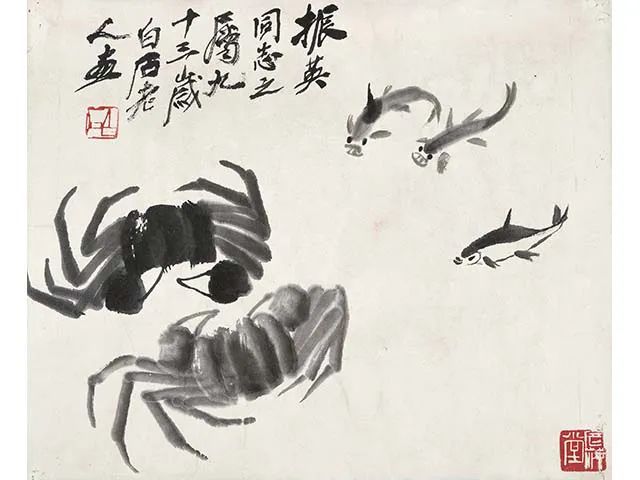 振英
同志之
屬九
十三歲
白石老
人畫